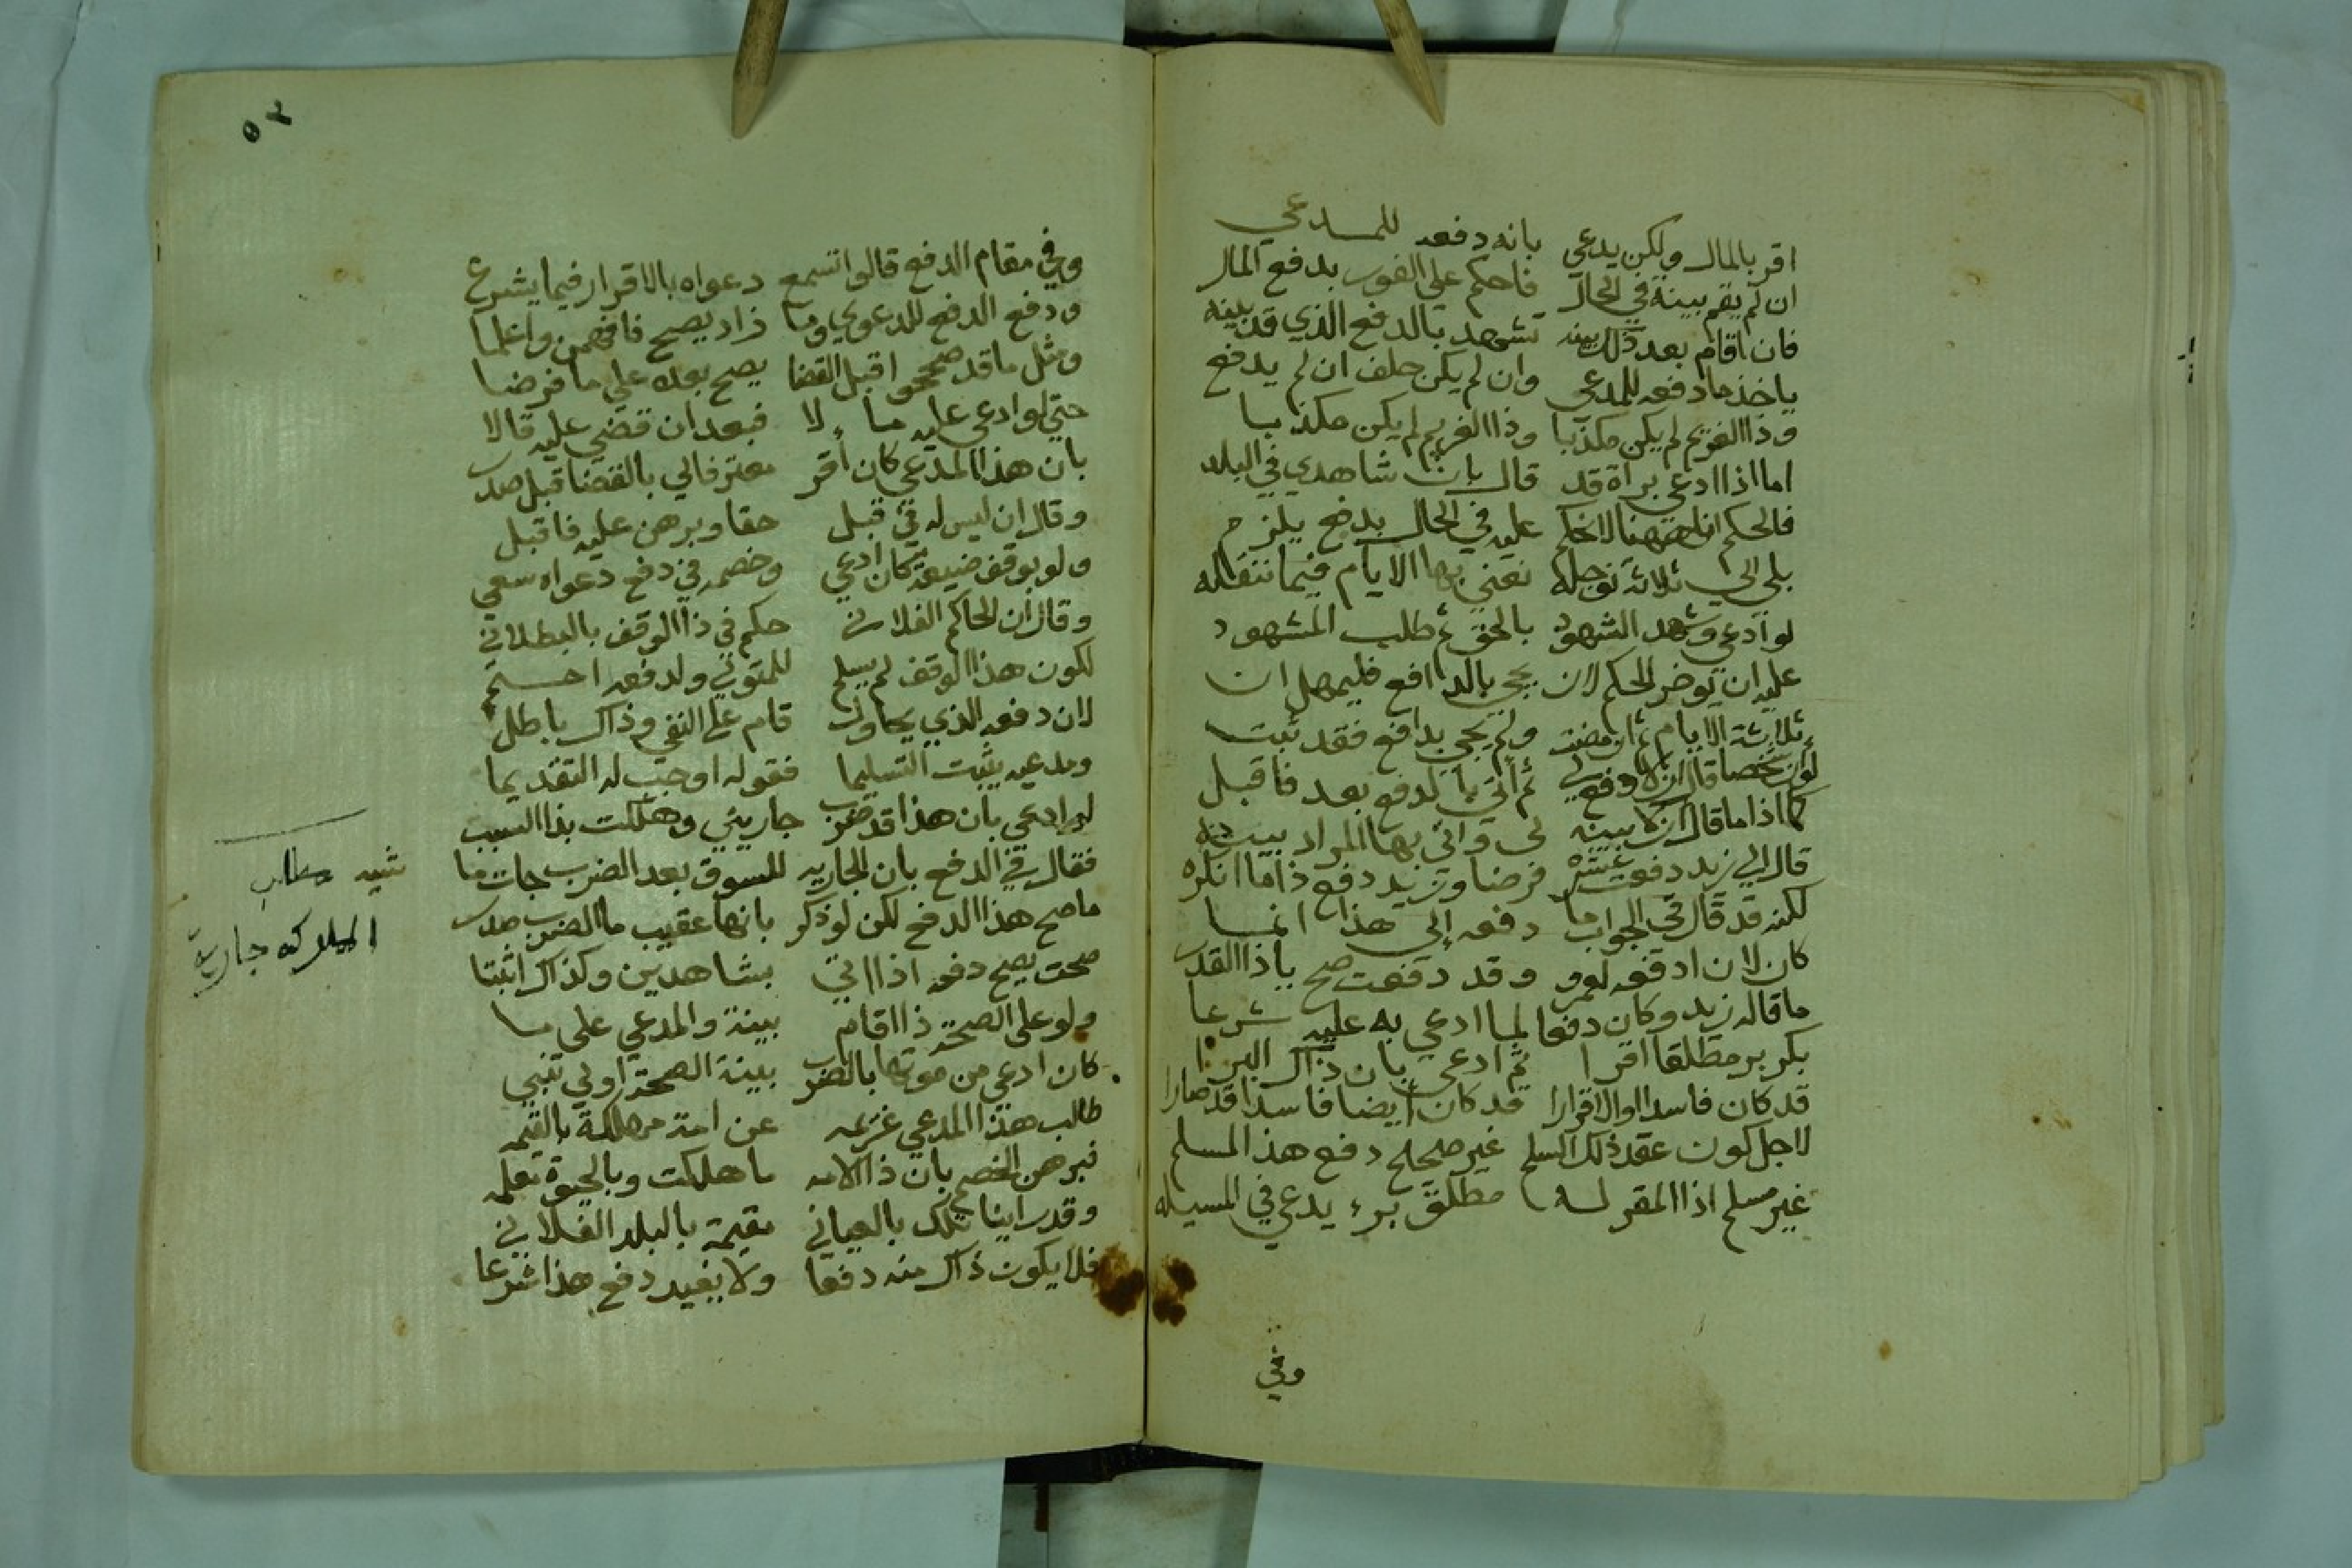 اقر بالمال ولكن يدعي بانه دفعه للمدعي
ان لم يقم بينة في الحال فاحكم على الفور بدفع المال
فان اقام بعد ذلك بينه تشهد بالدفع الذي قد بينه
ياخذ ما دفعه للمدعي وان لم يكن حلف ان لم يدفع
وذا الغريم لم يكن مكذبا وذا الغريم لم يكن مكذبا
اما اذا ادعى براة قد قال بان شاهدي في البلد
فالحكم ههنا لا نحكم عليه في الحال بدفع يلزم
بلى الى ثلاثة نوجله نعني بها الايام فيما ننقله
لو ادعى وشهد الشهود بالحق ثم طلب المشهود
عليه ان يوخر الحكم لان يجي بالدافع فليمهل ان
ثلاثة الايام ثم ان مضت ولم يجي بدافع فقد ثبت
لو ان شخصا قال ان لا دفع لي ثم اتى بالدفع بعد فاقبل
كما اذا ما قال ان لا بينه لي واتى بها المراد بينه
قال الى زيد دفعت عشره فرضا وزيد دفع ذا ما انكره
لكنه قد قال في الجواب ما دفعه إلى هذا انما
كان لان ادفعه لعمرو وقد دفعت صح يا ذا القدر
ما قاله زيد وكان دفعا لما ادعى به عليه شرعا
بكر ببر مطلقا اقرا ثم ادعى بان ذاك البرا
قد كان فاسدا والاقرارا قد كان أيضا فاسدا قد صارا
لاجل كون عقد ذلك السلم غير صحيح دفع هذا المسلم
غير مسلم اذا المقر له مطلق بر يدعي في المسيله
وفي
٥٢
وفي مقام الدفع قالوا تسمع دعواه بالاقرار فيما يشرع
ودفع الدفع للدعوى وما زاد يصح فافهمن واعلما
ومثل ما قد صححوا قبل القضا يصح بعده على ما فرضا
حتى لو ادعى عليه مالا فبعد ان قضى عليه قالا
بان هذا المدعي كان أقر معترفا لي بالقضا قبل صدر
وقال ان ليس له في قبل حقا وبرهن عليه فاقبل
ولو بوقف ضيعة كان ادعي وخصمه في دفع دعواه سعى
وقال ان الحاكم الفلاني حكم في ذا الوقف بالبطلان
لكون هذا الوقف لم يسلم للمتولي ولدفعه احسم
لان دفعه الذي يحاول قام على النفي وذاك باطل
ومدعيه يثبت التسليما فقوله اوجب له التقديما
لو ادعى بان هذا قد ضرب جاريتي وهلكت بذا السبب
فقال في الدفع بان الجاريه للسوق بعد الضرب جات ما
ما صح هذا الدفع لكن لو ذكر بانها عقيب ما الضرب صدر
صحت يصح دفعه اذا اتي بشاهدين وكذاك اثبتا
ولو على الصحة ذا اقام بينة والمدعي على ما
كان ادعى من موتها بالضرب بينة الصحة اولى تنبي
طالب هذا المدعي غريمه عن امة مهلكة بالقيمه
فبرهن الخصم بان ذا الامه ما هلكت وبالحيوة تعلمه
وقد راينا تلك بالعياني مقيمة بالبلد الفلاني
فلا يكون ذاك منه دفعا ولا يفيد دفع هذا شرعا
مطلب
جارية